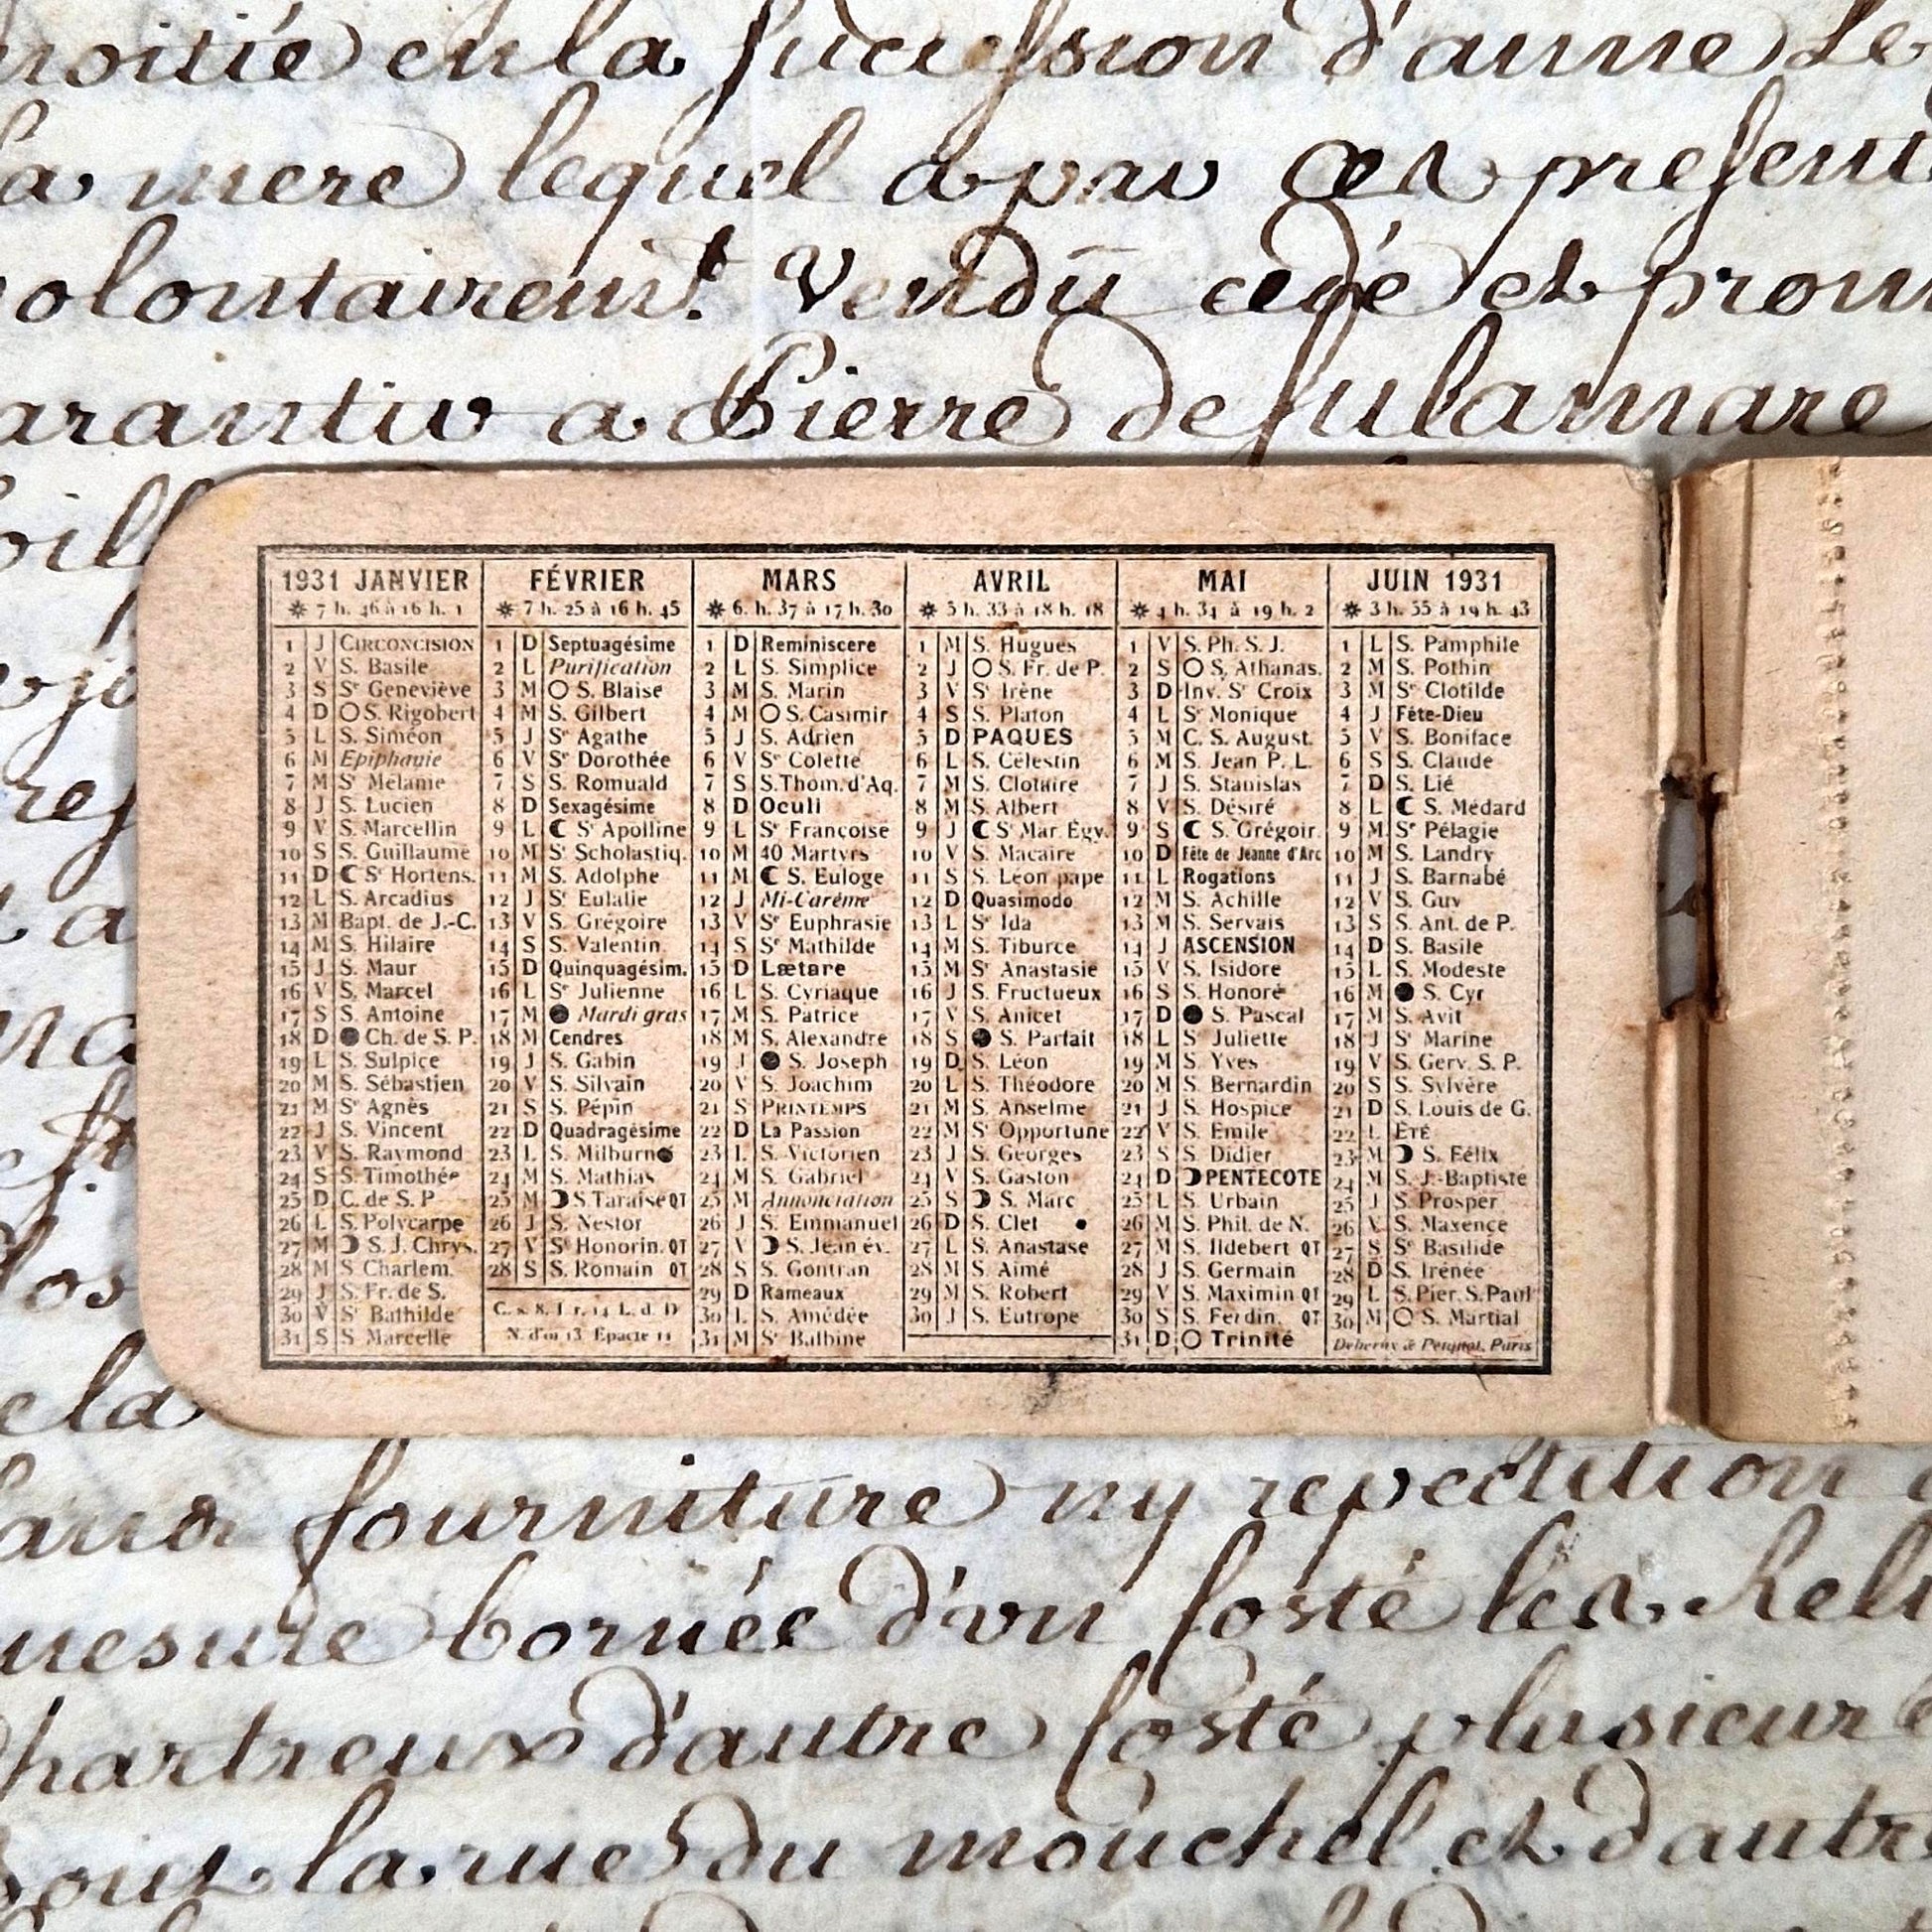 moitié en la succession d'anne Le
la mere lequel a par ces present
volontairem.t vendu cedé et prom
garantir a Pierre de sulamare
1931 JANVIER
7 h. 46 à 16 h. 1
1 J CIRCONCISION
2 V S. Basile
3 S Se Geneviève
4 D S. Rigobert
5 L S. Siméon
6 M Epiphanie
7 M Se Mélanie
8 J S. Lucien
9 V S. Marcellin
10 S S. Guillaume
11 D Se Hortens.
12 L S. Arcadius
13 M Bapt. de J.-C.
14 M S. Hilaire
15 J S. Maur
16 V S. Marcel
17 S S. Antoine
18 D Ch. de S. P.
19 L S. Sulpice
20 M S. Sébastien
21 M Se Agnès
22 J S. Vincent
23 V S. Raymond
24 S S. Timothée
25 D C. de S. P
26 L S. Polycarpe
27 M S. J. Chrys.
28 M S Charlem.
29 J S. Fr. de S.
30 V Se Bathilde
31 S S Marcelle
FÉVRIER
7 h. 25 à 16 h. 45
1 D Septuagésime
2 L Purification
3 M S. Blaise
4 M S. Gilbert
5 J Se Agathe
6 V Se Dorothée
7 S S. Romuald
8 D Sexagésime
9 L Se Apolline
10 M Se Scholastiq.
11 M S. Adolphe
12 J Se Eulalie
13 V S. Grégoire
14 S S. Valentin
15 D Quinquagésim.
16 L Se Julienne
17 M Mardi gras
18 M Cendres
19 J S. Gabin
20 V S. Silvain
21 S S. Pépin
22 D Quadragésime
23 L S. Milburne
24 M S. Mathias
25 M S Taraise QT
26 J S. Nestor
27 V Se Honorin. QT
28 S S. Romain QT
C. s. 8. I r. 14 L. d. D
N. d'or 13 Epacte 11
MARS
6. h. 37 à 17 h. 30
1 D Reminiscere
2 L S. Simplice
3 M S. Marin
4 M S. Casimir
5 J S. Adrien
6 V Se Colette
7 S S. Thom. d'Aq.
8 D Oculi
9 L Se Françoise
10 M 40 Martyrs
11 M S. Euloge
12 J Mi-Carême
13 V Se Euphrasie
14 S Se Mathilde
15 D Lætare
16 L S. Cyriaque
17 M S. Patrice
18 M S. Alexandre
19 J S. Joseph
20 V S. Joachim
21 S PRINTEMPS
22 D La Passion
23 L S. Victorien
24 M S. Gabriel
25 M Annonciation
26 J S. Emmanuel
27 V S. Jean év.
28 S S. Gontran
29 D Rameaux
30 L S. Amédée
31 M Se Balbine
AVRIL
5 h. 33 à 18 h. 18
1 M S. Hugues
2 J S. Fr. de P.
3 V Se Irène
4 S S. Platon
5 D PAQUES
6 L S. Célestin
7 M S. Clotaire
8 M S. Albert
9 J Se Mar. Egy.
10 V S. Macaire
11 S S. Léon pape
12 D Quasimodo
13 L Se Ida
14 M S. Tiburce
15 M Se Anastasie
16 J S. Fructueux
17 V S. Anicet
18 S S. Parfait
19 D S. Léon
20 L S. Théodore
21 M S. Anselme
22 M Se Opportune
23 J S. Georges
24 V S. Gaston
25 S S. Marc
26 D S. Clet
27 L S. Anastase
28 M S. Aimé
29 M S. Robert
30 J S. Eutrope
MAI
4 h. 34 à 19 h. 2
1 V S. Ph. S. J.
2 S S. Athanas.
3 D Inv. Se Croix
4 L Se Monique
5 M C. S. August.
6 M S. Jean P. L.
7 J S. Stanislas
8 V S. Désiré
9 S S. Grégoir.
10 D Fête de Jeanne d'Arc
11 L Rogations
12 M S. Achille
13 M S. Servais
14 J ASCENSION
15 V S. Isidore
16 S S. Honoré
17 D S. Pascal
18 L Se Juliette
19 M S. Yves
20 M S. Bernardin
21 J S. Hospice
22 V S. Emile
23 S S. Didier
24 D PENTECOTE
25 L S. Urbain
26 M S. Phil. de N.
27 M S. Ildebert QT
28 J S. Germain
29 V S. Maximin QT
30 S S. Ferdin. QT
31 D Trinité
JUIN 1931
3 h. 55 à 19 h. 43
1 L S. Pamphile
2 M S. Pothin
3 M Se Clotilde
4 J Fête-Dieu
5 V S. Boniface
6 S S. Claude
7 D S. Lié
8 L S. Médard
9 M Se Pélagie
10 M S. Landry
11 J S. Barnabé
12 V S. Guy
13 S S. Ant. de P.
14 D S. Basile
15 L S. Modeste
16 M S. Cyr
17 M S. Avit
18 J Se Marine
19 V S. Gerv. S. P.
20 S S. Sylvère
21 D S. Louis de G.
22 L ETÉ
23 M S. Félix
24 M S. J.-Baptiste
25 J S. Prosper
26 V S. Maxence
27 S Se Basilide
28 D S. Irénée
29 L S. Pier. S. Paul
30 M S. Martial
Deberny & Peignot, Paris
fourniture ny repetition
mesure bornée d'un costé les Reli
Chartreux d'autre costé plusieurs
la rue du mouchel et d'autre